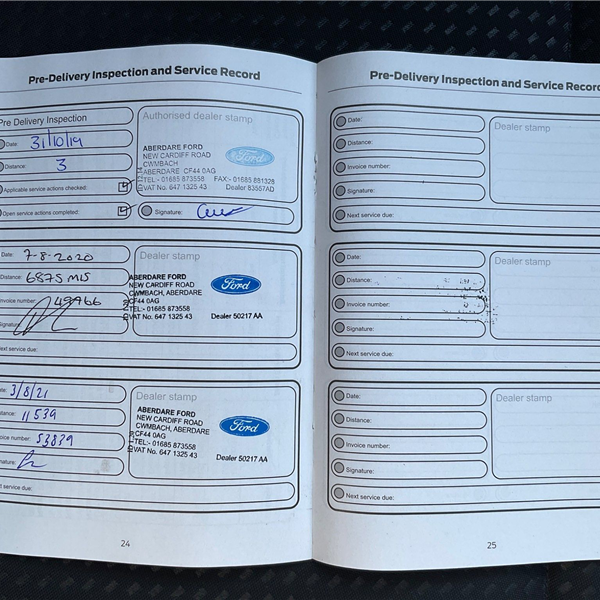 Pre-Delivery Inspection and Service Record
Pre Delivery Inspection
Date: 31/10/19
Distance: 3
Applicable service actions checked:
Open service actions completed:
Authorised dealer stamp
ABERDARE FORD
NEW CARDIFF ROAD
CWMBACH
ABERDARE CF44 0AG
TEL:- 01685 873558 FAX:- 01685 881328
VAT No. 647 1325 43 Dealer 83557AD
Ford
Signature:
Date: 7-8-2020
Distance: 6875 MLS
Invoice number: 49766
Signature
Next service due:
Dealer stamp
ABERDARE FORD
NEW CARDIFF ROAD
CWMBACH, ABERDARE
CF44 0AG
TEL:- 01685 873558
VAT No. 647 1325 43 Dealer 50217 AA
Ford
ate: 3/8/21
stance: 11539
oice number: 53839
nature:
t service due:
Dealer stamp
ABERDARE FORD
NEW CARDIFF ROAD
CWMBACH, ABERDARE
CF44 0AG
TEL:- 01685 873558
VAT No. 647 1325 43 Dealer 50217 AA
Ford
24
Pre-Delivery Inspection and Service Record
Date:
Distance:
Invoice number:
Signature:
Next service due:
Dealer stamp
Date:
Distance:
Invoice number:
Signature:
Next service due:
Dealer stamp
Date:
Distance:
Invoice number:
Signature:
Next service due:
Dealer stamp
25